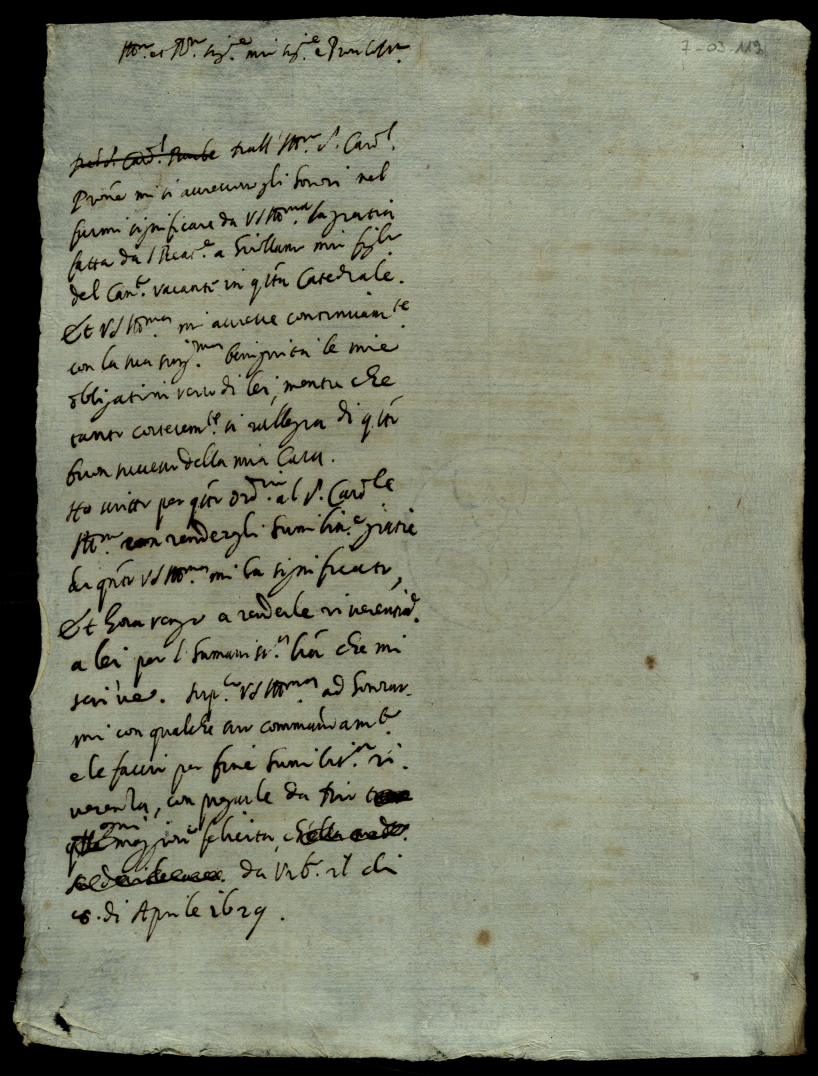 7-03-113
Ill.mo et R.mo Sig.re mio Sig.re e Pron Col.mo
dall' Ill.mo S. Card.l
Prõne mi si accrescono gli honori nel
farmi significare da VS Ill.ma la gratia
fatta da a Girillamo mio figlio
del Can.to vacante in q.sta Catedrale.
Et VS Ill.ma mi accresce continuam.te
con la sua benignità le mie
obligationi verso di lei, mentre che
tanto cortesem.te si rallegra di q.sto
buon successo della mia Casa.
Ho scritto per q.sto ord.rio al S. Card.le
Ill.mo rendergli humiliss.e gratie
di q.nto VS Ill.ma mi ha significato,
Et hora vengo a renderle
a lei per l'humaniss.a lr̃a che mi
scrive. Sup.co VS Ill.ma ad honorar-
mi con qualche suo commandam.to
e le faccio per fine humiliss.a ri-
verenza, con pregarle da Dio
ogni maggiore felicità, da Urb.o il di
8. di Aprile 1629.